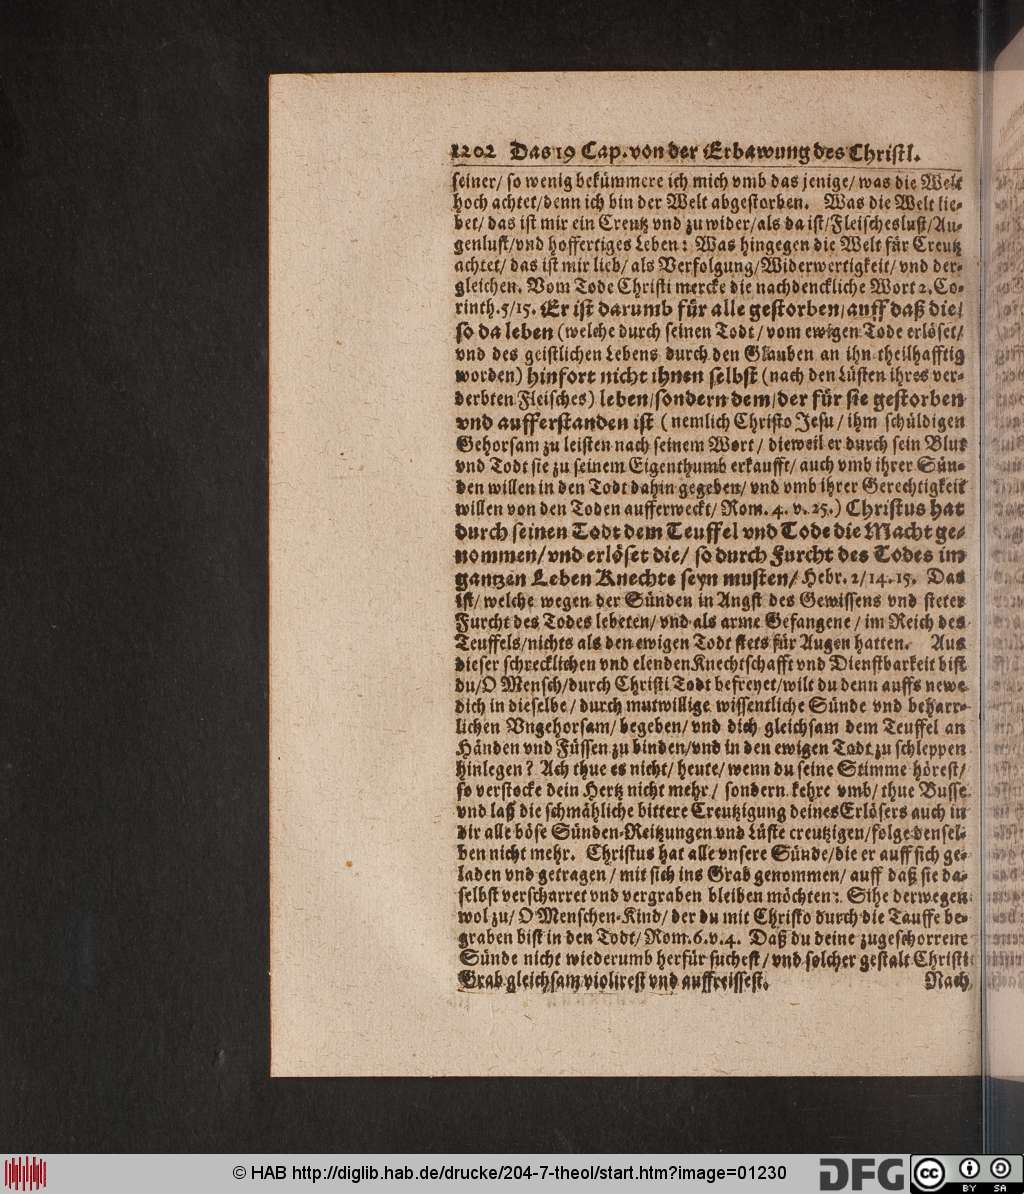 1202 Das 19 Cap. von der Erbawung des Christl.
seiner/ so wenig bekümmere ich mich vmb das jenige/ was die Welt
hoch achtet/ denn ich bin der Welt abgestorben. Was die Welt lie-
bet/ das ist mir ein Creutz vnd zu wider/ als da ist/ Fleischeslust/ Au-
genlust/ vnd hoffertiges Leben: Was hingegen die Welt für Creutz
achtet/ das ist mir lieb/ als Verfolgung/ Widerwertigkeit/ vnd der-
gleichen. Vom Tode Christi mercke die nachdenckliche Wort 2. Co-
rinth. 5/15. Er ist darumb für alle gestorben/ auff daß die/
so da leben (welche durch seinen Todt/ vom ewigen Tode erlöset/
vnd des geistlichen Lebens durch den Glauben an ihn theilhafftig
worden) hinfort nicht ihnen selbst (nach den Lüsten ihres ver-
derbten Fleisches) leben/ sondern dem/ der für sie gestorben
vnd aufferstanden ist (nemlich Christo Jesu/ ihm schüldigen
Gehorsam zu leisten nach seinem Wort/ dieweil er durch sein Blut
vnd Todt sie zu seinem Eigenthumb erkaufft/ auch vmb ihrer Sün-
den willen in den Todt dahin gegeben/ vnd vmb ihrer Gerechtigkeit
willen von den Toden aufferweckt/ Rom. 4. v. 25.) Christus hat
durch seinen Todt dem Teuffel vnd Tode die Macht ge-
nommen/ vnd erlöset die/ so durch Furcht des Todes im
gantzen Leben Knechte seyn musten/ Hebr. 2/14.15. Das
ist/ welche wegen der Sünden in Angst des Gewissens vnd steter
Furcht des Todes lebeten/ vnd als arme Gefangene/ im Reich des
Teuffels/ nichts als den ewigen Todt stets für Augen hatten. Aus
dieser schrecklichen vnd elenden Knechtschafft vnd Dienstbarkeit bist
du/ O Mensch/ durch Christi Todt befreyet/ wilt du denn auffs newe
dich in dieselbe/ durch mutwillige wissentliche Sünde vnd beharr-
lichen Vngehorsam/ begeben/ vnd dich gleichsam dem Teuffel an
Händen vnd Füssen zu binden/ vnd in den ewigen Todt zu schleppen
hinlegen? Ach thue es nicht/ heute/ wenn du seine Stimme hörest/
so verstocke dein Hertz nicht mehr/ sondern kehre vmb/ thue Busse
vnd laß die schmähliche bittere Creutzigung deines Erlösers auch in
dir alle böse Sünden-Reitzungen vnd Lüste creutzigen/ folge densel-
ben nicht mehr. Christus hat alle vnsere Sünde/ die er auff sich ge-
laden vnd getragen/ mit sich ins Grab genommen/ auff daß sie da-
selbst verscharret vnd vergraben bleiben möchten: Sihe derwegen
wol zu/ O Menschen-Kind/ der du mit Christo durch die Tauffe be-
graben bist in den Todt/ Rom. 6. v. 4. Daß du deine zugeschorrene
Sünde nicht wiederumb herfür suchest/ vnd solcher gestalt Christi
Grab gleichsam violirest vnd auffreissest. Nach
© HAB http://diglib.hab.de/drucke/204-7-theol/start.htm?image=01230
DFG
cc BY SA